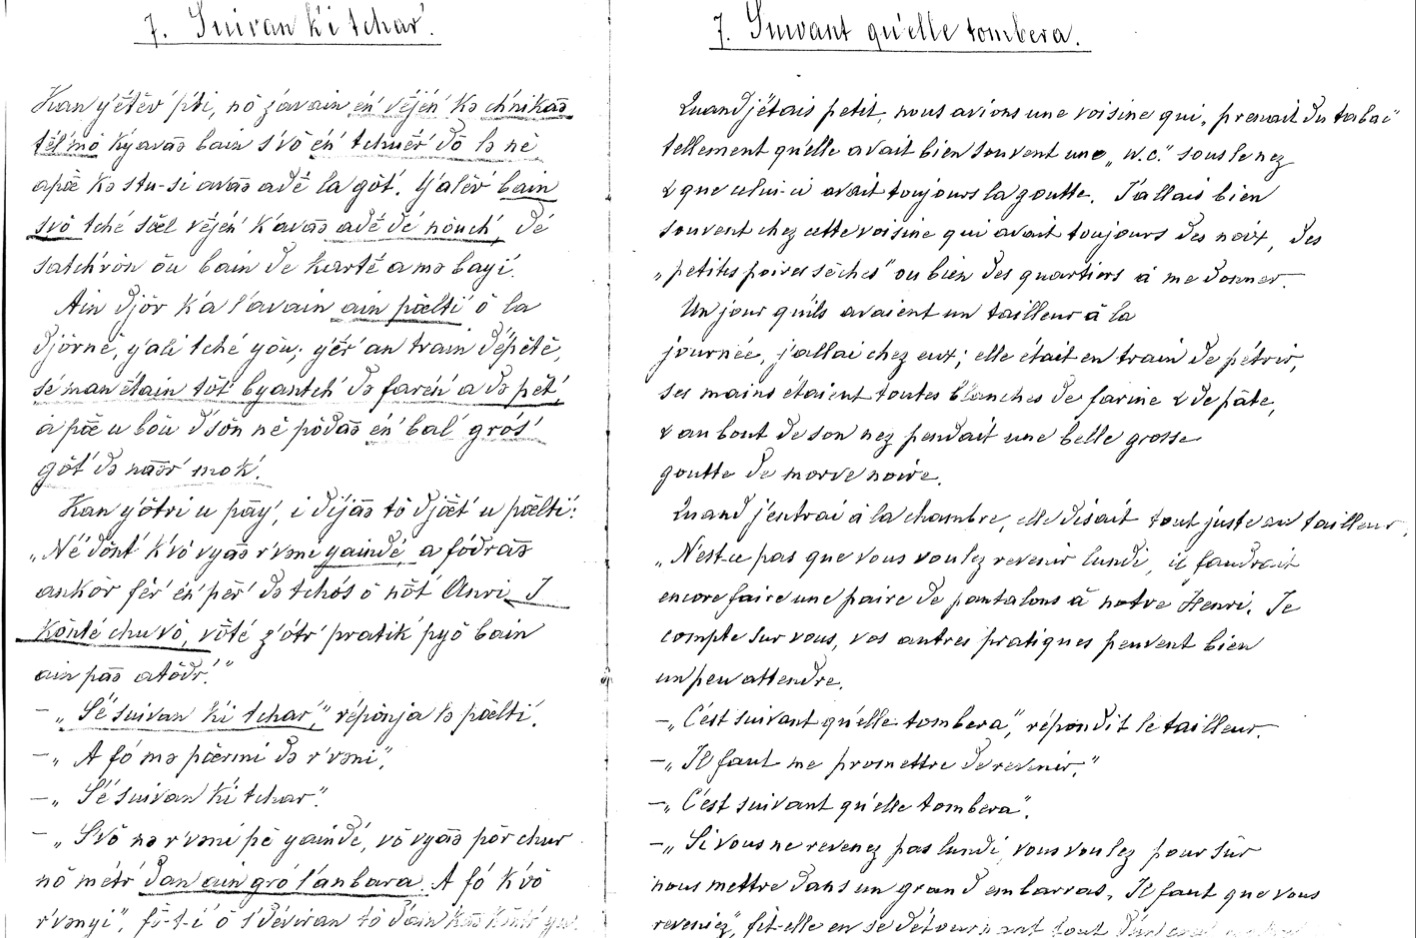 7. Suivan k'i tchar'.
Kan y'étëv' p'ti, nô z'avain én' véjén' kə ch'nikāə
tël'mə k'yavāə bain s'vô én' tchuër' dô lə nê
apœ̄ kə stu-si avāə adé la göt'. Y'alëv' bain
svô tché sœ̄l véjén' k'avāə adé dé nöuch', dé
satch'rön öu bain de kartë a mə bayi.
Ain djör k'a l'avain ain pœ̄lti' ô la
djörnê, y'ali tché yöu; y'ër' an train d'épêtê,
sé man étain töt' byantch' də faren' a də pêt',
a pœ̄ u böu d'sön nê pödāə én' bal' grós'
göt' də nāər' mok'.
Kan y'ötri u pāy', i dijāə tö djœ̄t' u pœ̄lti':
„Né dönt' k'vô vyāə r'vəni yaindé, a fódrāə
ankör fér' én' për' də tchós' ô nöt' Anri. I
könté chu vô, vôté z'ótr' pratik' pyô bain
ain pāə atödr'."
– „Sé suivan k'i tchar'", répönja lə pœ̄lti'.
– „A fó mə pœ̄rmi də r'vəni",
– „Sé suivan k'i tchar'".
– „Svô nə r'vəni pê yaindé, vô vyāə pör chur
nô métr' dan ain gró l'anbara. A fó k'vô
r'vənyi", fi-t-i' ô s'déviran tö d'ain
7. Suivant qu'elle tombera.
Quand j'étais petit, nous avions une voisine qui „prenait du tabac"
tellement qu'elle avait bien souvent une „w.c." sous le nez
& que celui-ci avait toujours la goutte. J'allais bien
souvent chez cette voisine qui avait toujours des noix, des
„petites poires sèches" ou bien des quartiers à me donner.
Un jour qu'ils avaient un tailleur à la
journée, j'allai chez eux; elle était en train de pétrir,
ses mains étaient toutes blanches de farine & de pâte,
& au bout de son nez pendait une belle grosse
goutte de morve noire.
Quand j'entrai à la chambre, elle disait tout juste au tailleur,
„N'est-ce pas que vous voulez revenir lundi, il faudrait
encore faire une paire de pantalons à notre Henri. Je
compte sur vous, vos autres pratiques peuvent bien
un peu attendre.
–„C'est suivant qu'elle tombera", répondit le tailleur.
–„Il faut me promettre de revenir,"
–„C'est suivant qu'elle tombera".
–„Si vous ne revenez pas lundi, vous voulez pour sûr
nous mettre dans un grand embarras. Il faut que vous
reveniez", fit-elle en se détournant tout